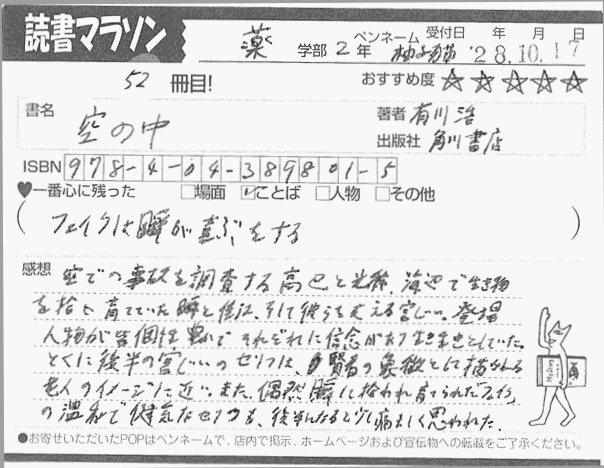 読書マラソン
薬 学部 2 年 ペンネーム 受付日 '28.10.17 年 月 日
52 冊目! おすすめ度 ☆☆☆☆☆
書名 空の中
著者 有川 浩
出版社 角川書店
ISBN 978-4-04-389801-5
♥一番心に残った □場面 ☑ことば □人物 □その他
(フェイクは瞬が喜ぶをする)
感想 空での事故を調査する高巳と光稀、海辺で生き物
を拾い育てていた瞬と佳江、そして彼らを支える宮じい。登場
人物が皆個性豊かで それぞれに信念があり生き生きとしていた。
とくに後半の宮じいのセリフは、賢者の象徴として描かれる
老人のイメージに近い。また、偶然瞬に拾われ育てられたフェイク
の温和で健気なセリフも、後半になると少し痛ましく思われた。
●お寄せいただいたPOPはペンネームで、店内で掲示、ホームページおよび宣伝物への転載をご了承ください。